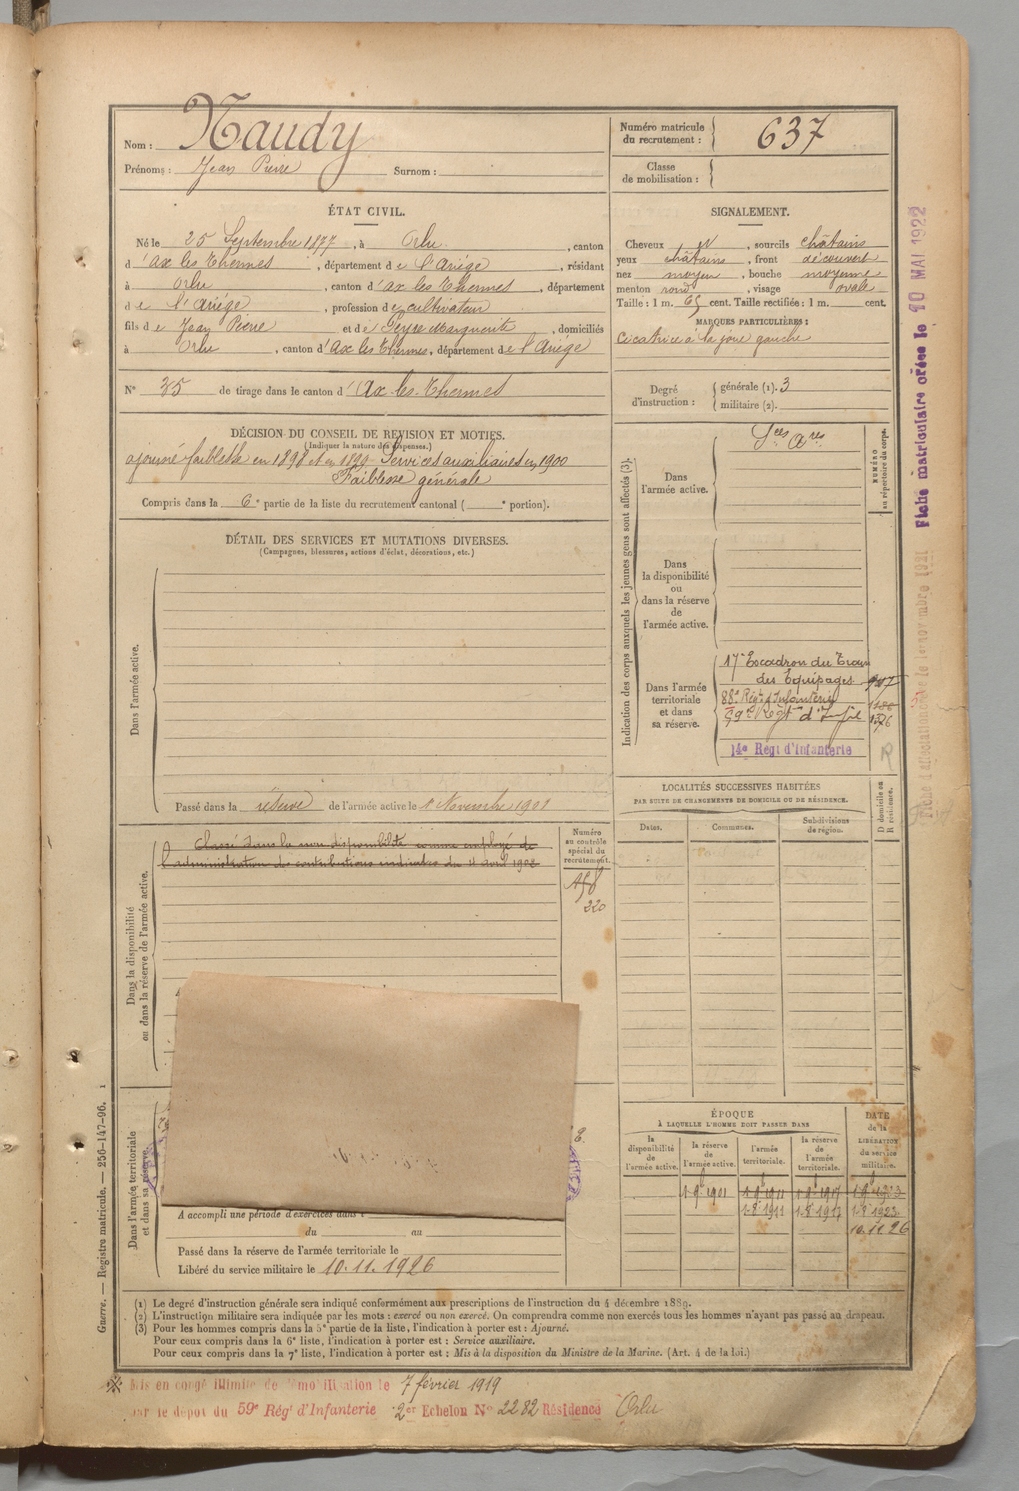 Nom : Naudy
Prénoms : Jean Pierre Surnom :
Numéro matricule du recrutement : 637
Classe de mobilisation :
ÉTAT CIVIL.
Né le 25 Septembre 1877, à Orlu, canton
d'ax les Thermes, département de l'Ariége, résidant
à Orlu, canton d'ax les Thermes, département
de l'Ariége, profession de cultivateur
fils de Jean Pierre et de Peyre Marguerite, domiciliés
à Orlu, canton d'Ax les Thermes, département de l'Ariége
N° 35 de tirage dans le canton d'Ax-les-Thermes
SIGNALEMENT.
Cheveux N, sourcils châtains
yeux châtains, front découvert
nez moyen, bouche moyenne
menton rond, visage ovale
Taille : 1 m. 65 cent. Taille rectifiée : 1 m. cent.
MARQUES PARTICULIÈRES :
Cicatrice à la joue gauche
Degré d'instruction : générale (1). 3
militaire (2).
DÉCISION DU CONSEIL DE REVISION ET MOTIFS.
(Indiquer la nature des dispenses.)
ajourné faiblesse en 1898 et en 1899 Services auxiliaires en 1900
Faiblesse générale
Compris dans la 6e partie de la liste du recrutement cantonal ( e portion).
DÉTAIL DES SERVICES ET MUTATIONS DIVERSES.
(Campagnes, blessures, actions d'éclat, décorations, etc.)
Dans l'armée active.
Passé dans la réserve de l'armée active le 1 Novembre 1901
Indication des corps auxquels les jeunes gens sont affectés (3).
NUMÉRO au répertoire du corps.
Sces Ares
Dans l'armée active.
Dans la disponibilité ou dans la réserve de l'armée active.
Dans l'armée territoriale et dans sa réserve.
17e Escadron du Train
des Equipages
88e Régt d'Infanterie
59e Régt d'Infie
14e Régt d'Infanterie
R
Fiche matriculaire créée le 10 MAI 1922
LOCALITÉS SUCCESSIVES HABITÉES
PAR SUITE DE CHANGEMENTS DE DOMICILE OU DE RÉSIDENCE.
Dates.
Communes.
Subdivisions de région.
D domicile ou R résidence.
Dans la disponibilité ou dans la réserve de l'armée active.
Classé dans la non disponibilité comme employé de
l'administration des contributions indirectes du 11 avril 1902
Numéro au contrôle spécial du recrutement.
220
Dans l'armée territoriale et dans sa réserve.
A accompli une période d'exercices dans l
du au
Passé dans la réserve de l'armée territoriale le
Libéré du service militaire le 10.11.1926
ÉPOQUE
À LAQUELLE L'HOMME DOIT PASSER DANS
la disponibilité de l'armée active.
la réserve de l'armée active.
l'armée territoriale.
la réserve de l'armée territoriale.
DATE de la LIBÉRATION du service militaire.
1.9.1901 1.9.1911 1.9.1917 1.9.1923
1.8.1911 1.8.1917 1.8.1923
10.11.26
(1) Le degré d'instruction générale sera indiqué conformément aux prescriptions de l'instruction du 4 décembre 1889.
(2) L'instruction militaire sera indiquée par les mots : exercé ou non exercé. On comprendra comme non exercés tous les hommes n'ayant pas passé au drapeau.
(3) Pour les hommes compris dans la 5e partie de la liste, l'indication à porter est : Ajourné.
Pour ceux compris dans la 6e liste, l'indication à porter est : Service auxiliaire.
Pour ceux compris dans la 7e liste, l'indication à porter est : Mis à la disposition du Ministre de la Marine. (Art. 4 de la loi.)
Guerre. — Registre matricule. — 256-147-96.
Mis en congé illimité de démobilisation le 7 février 1919
par le dépôt du 59e Régt d'Infanterie 2er Echelon N° 2282 Résidence Orlu